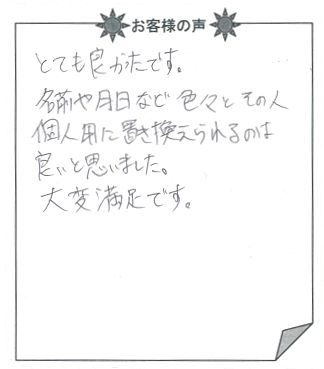 お客様の声
とても良かたです。
名前や月日など色々とその人
個人用に置き換えられるのは
良いと思いました。
大変満足です。